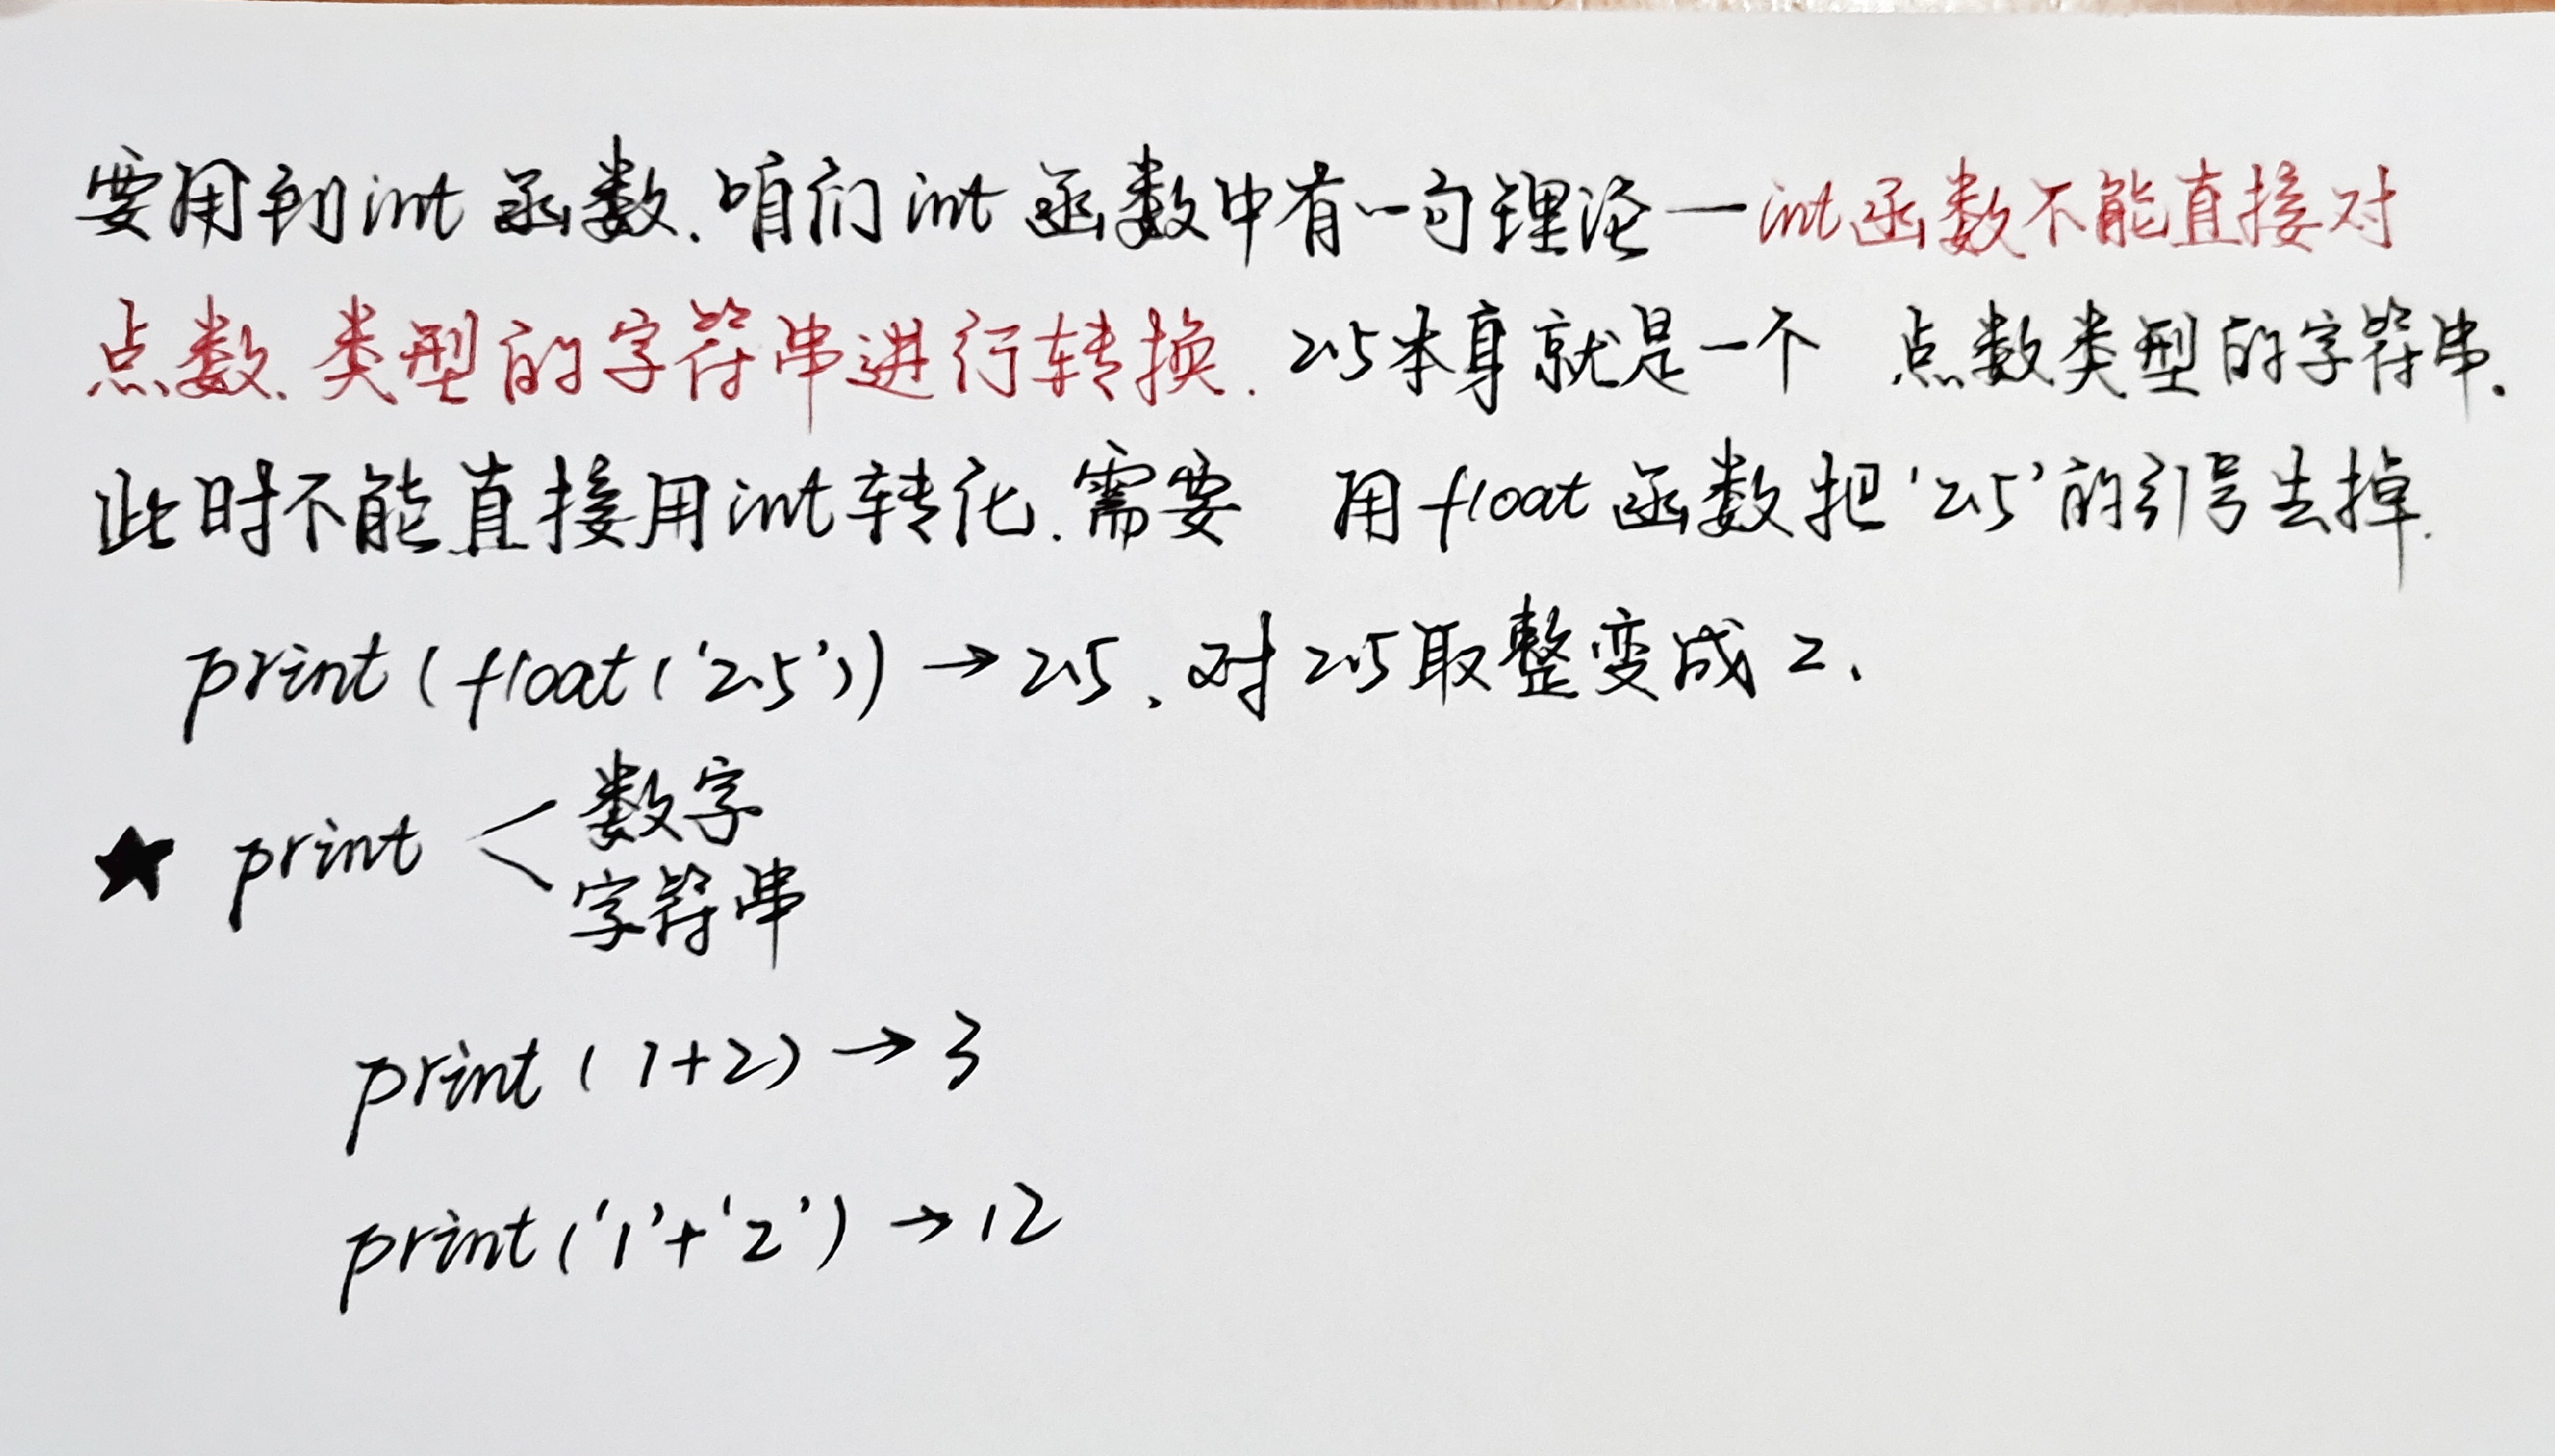 要用到int函数.咱们int函数中有一句理论—int函数不能直接对
点数.类型的字符串进行转换.2.5本身就是一个 点数类型的字符串.
此时不能直接用int转化.需要 用float函数把'2.5'的引号去掉.
print(float('2.5'))→2.5、对2.5取整变成2、
★ print < 数字
字符串
print(1+2)→3
print('1'+'2')→12